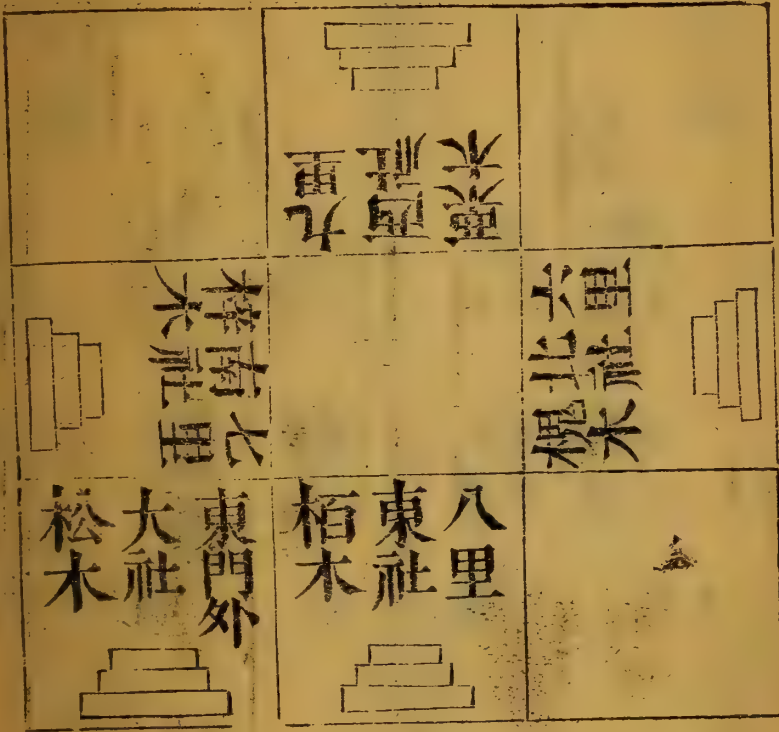 九里
西社
栗木
六里
北社
槐木
七里
南社
梓木
八里
東社
栢木
東門外
大社
松木